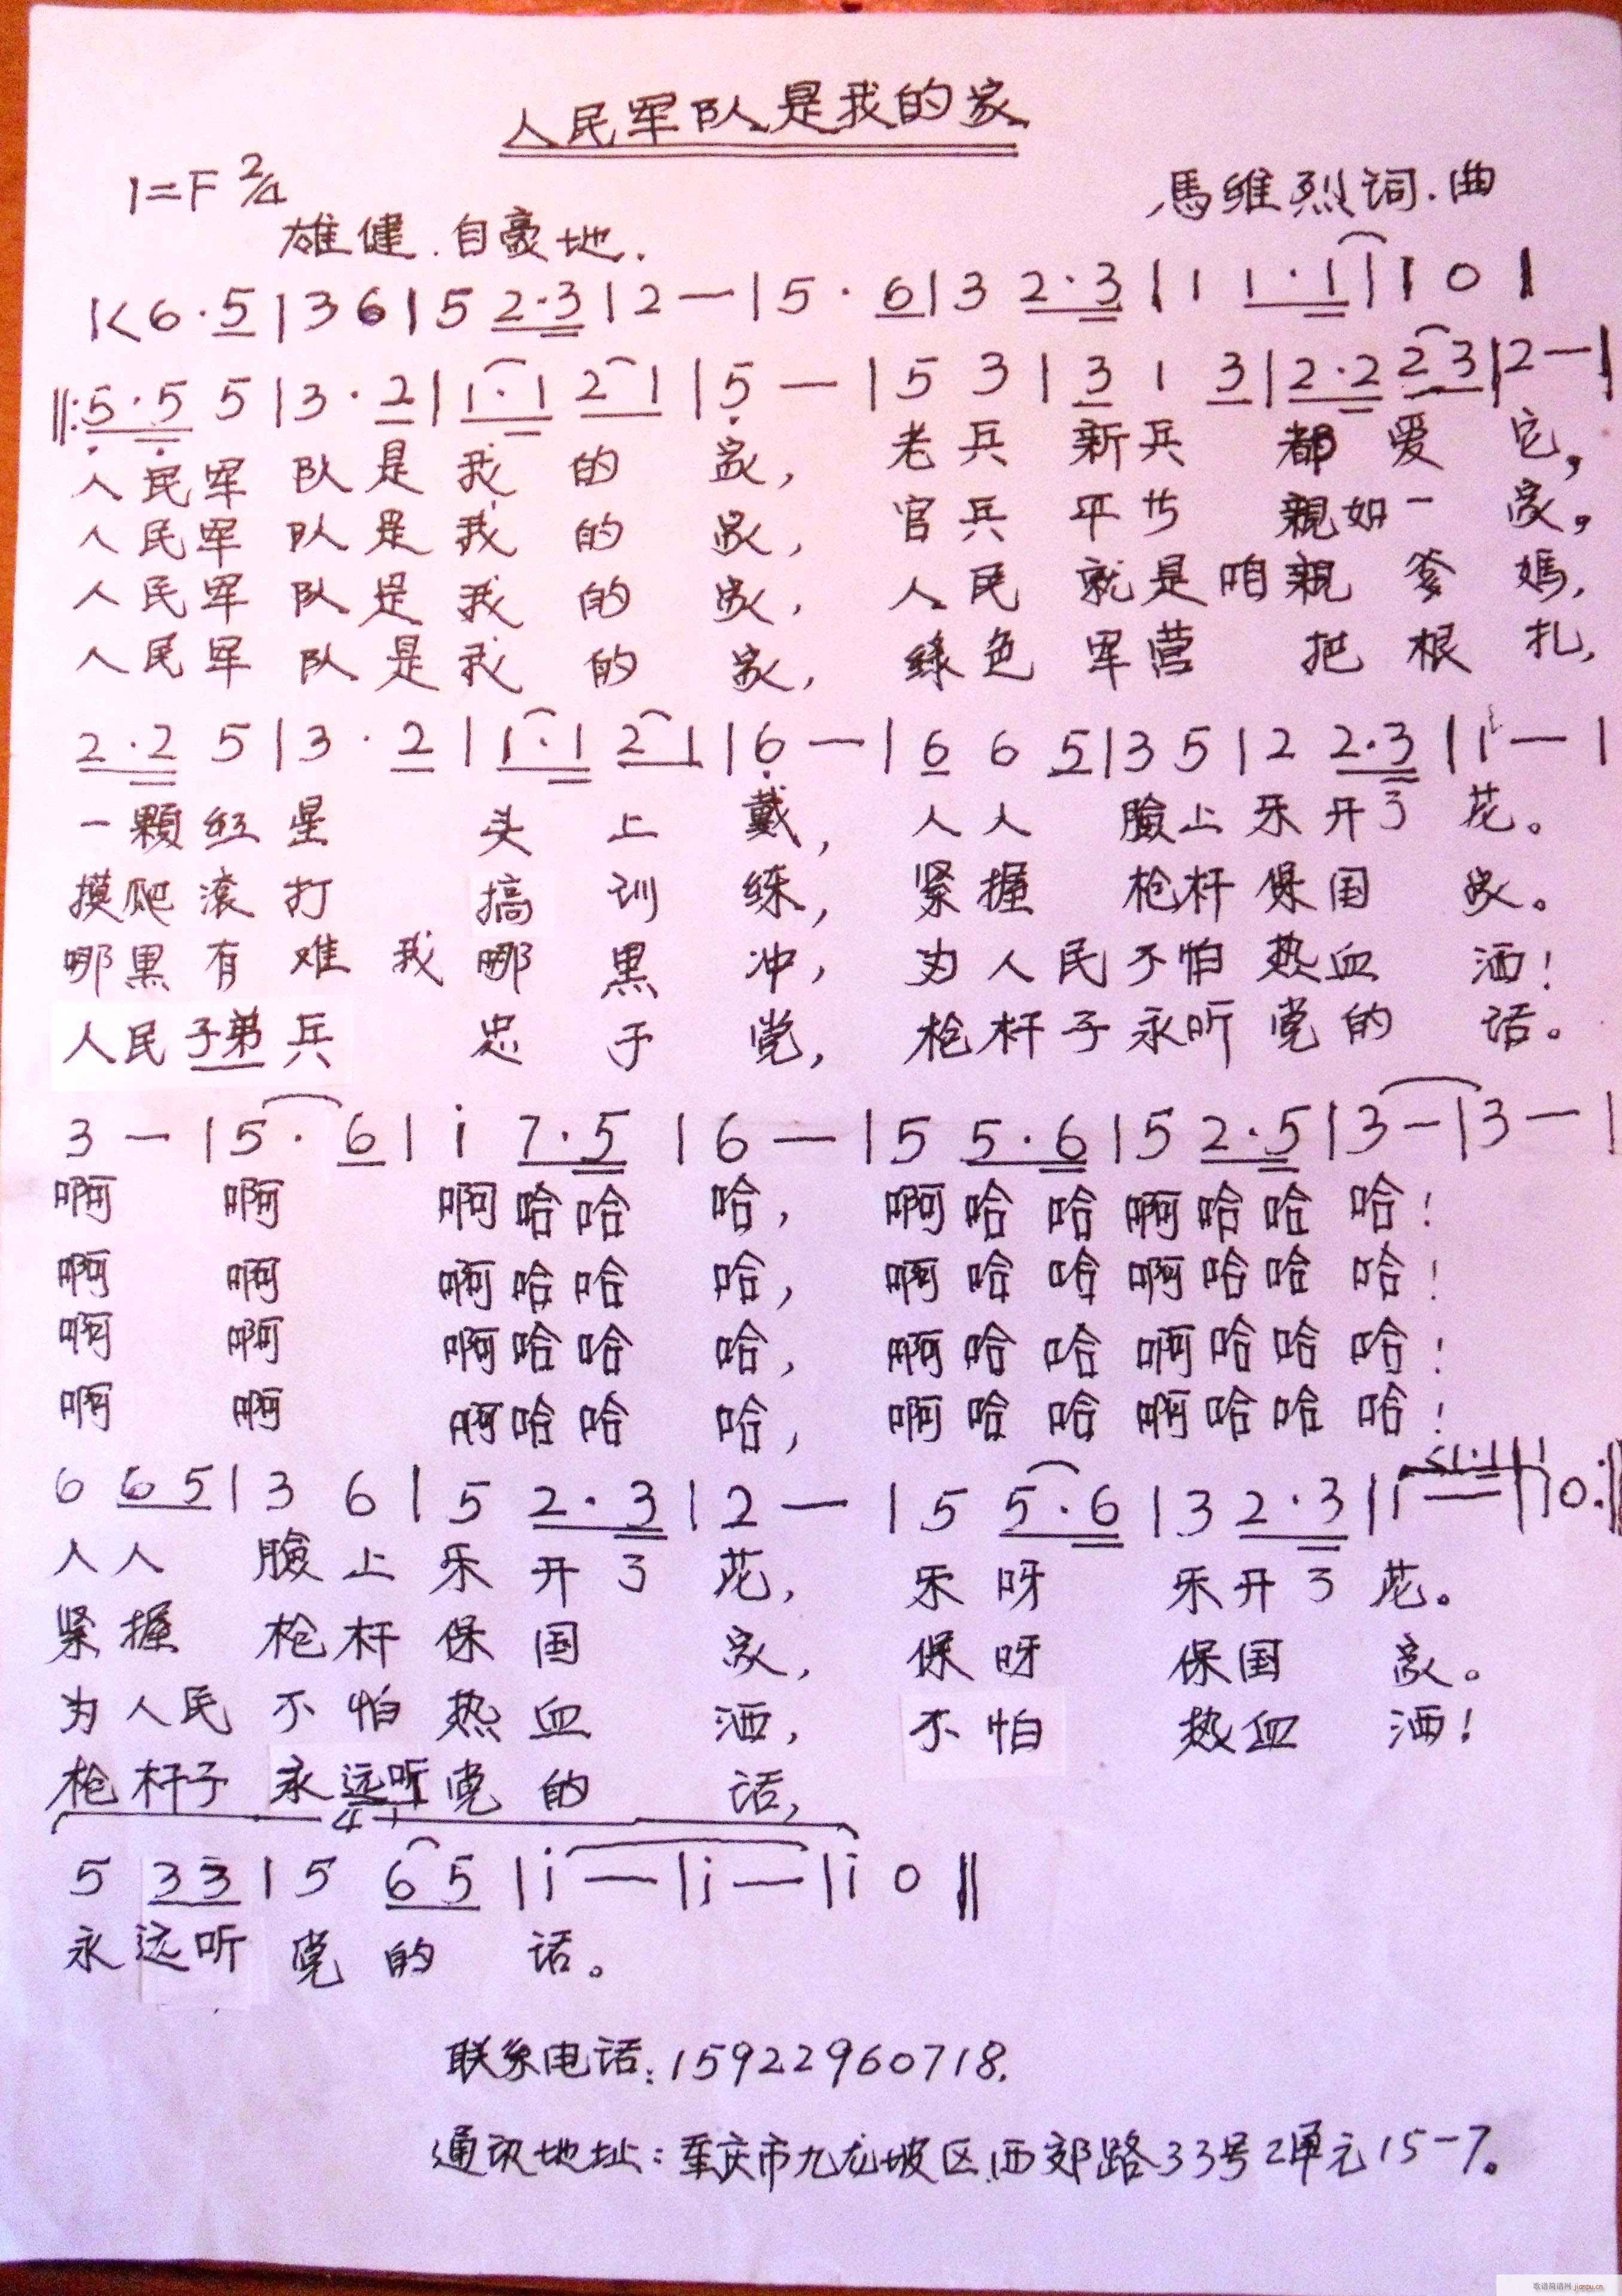 人民军队是我的家
1=F 2/4
馬维烈词.曲
雄健.自豪地.
|<6·5|36|5 2·3|2—|5·6|3 2·3|1 1·1|1 0|
‖:5·5 5|3·2|1·1 2 1|5—|5 3|3 1 3|2·2 2 3|2—|
人民军队是我的家,老兵新兵都爱它,
人民军队是我的家,官兵平等親如一家,
人民军队是我的家,人民就是咱親爹媽,
人民军队是我的家,绿色军营把根扎,
2·2 5|3·2|1·1 2 1|6—|6 6 5|3 5|2 2·3|1—|
一顆红星头上戴,人人臉上乐开了花。
摸爬滚打搞训练,紧握枪杆保国家。
哪里有难我哪里冲,为人民不怕热血洒!
人民子弟兵忠于党,枪杆子永听党的话。
3—|5·6|i 7·5|6—|5 5·6|5 2·5|3—|3—|
啊啊啊哈哈哈,啊哈哈啊哈哈哈!
啊啊啊哈哈哈,啊哈哈啊哈哈哈!
啊啊啊哈哈哈,啊哈哈啊哈哈哈!
啊啊啊哈哈哈,啊哈哈啊哈哈哈!
6 6 5|3 6|5 2·3|2—|5 5·6|3 2·3|1—|1 0:‖
人人臉上乐开了花,乐呀乐开了花。
紧握枪杆保国家,保呀保国家。
为人民不怕热血洒,不怕热血洒!
枪杆子永远听党的话,
5 3 3|5 6 5|i—|i—|i 0‖
永远听党的话。
联系电话:15922960718.
通讯地址:重庆市九龙坡区西郊路33号2单元15-7。
歌谱简谱网 jianpu.cn